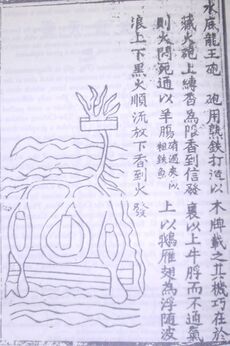 水底龍王砲　砲用熟鐵打造以木牌載之其機巧在於
藏火砲上縛香為限香到信發裹以上牛脬而不通氣
則火悶死通以羊腸上以鵝雁翅為浮隨波
浪上下黑火順流放下香到火發